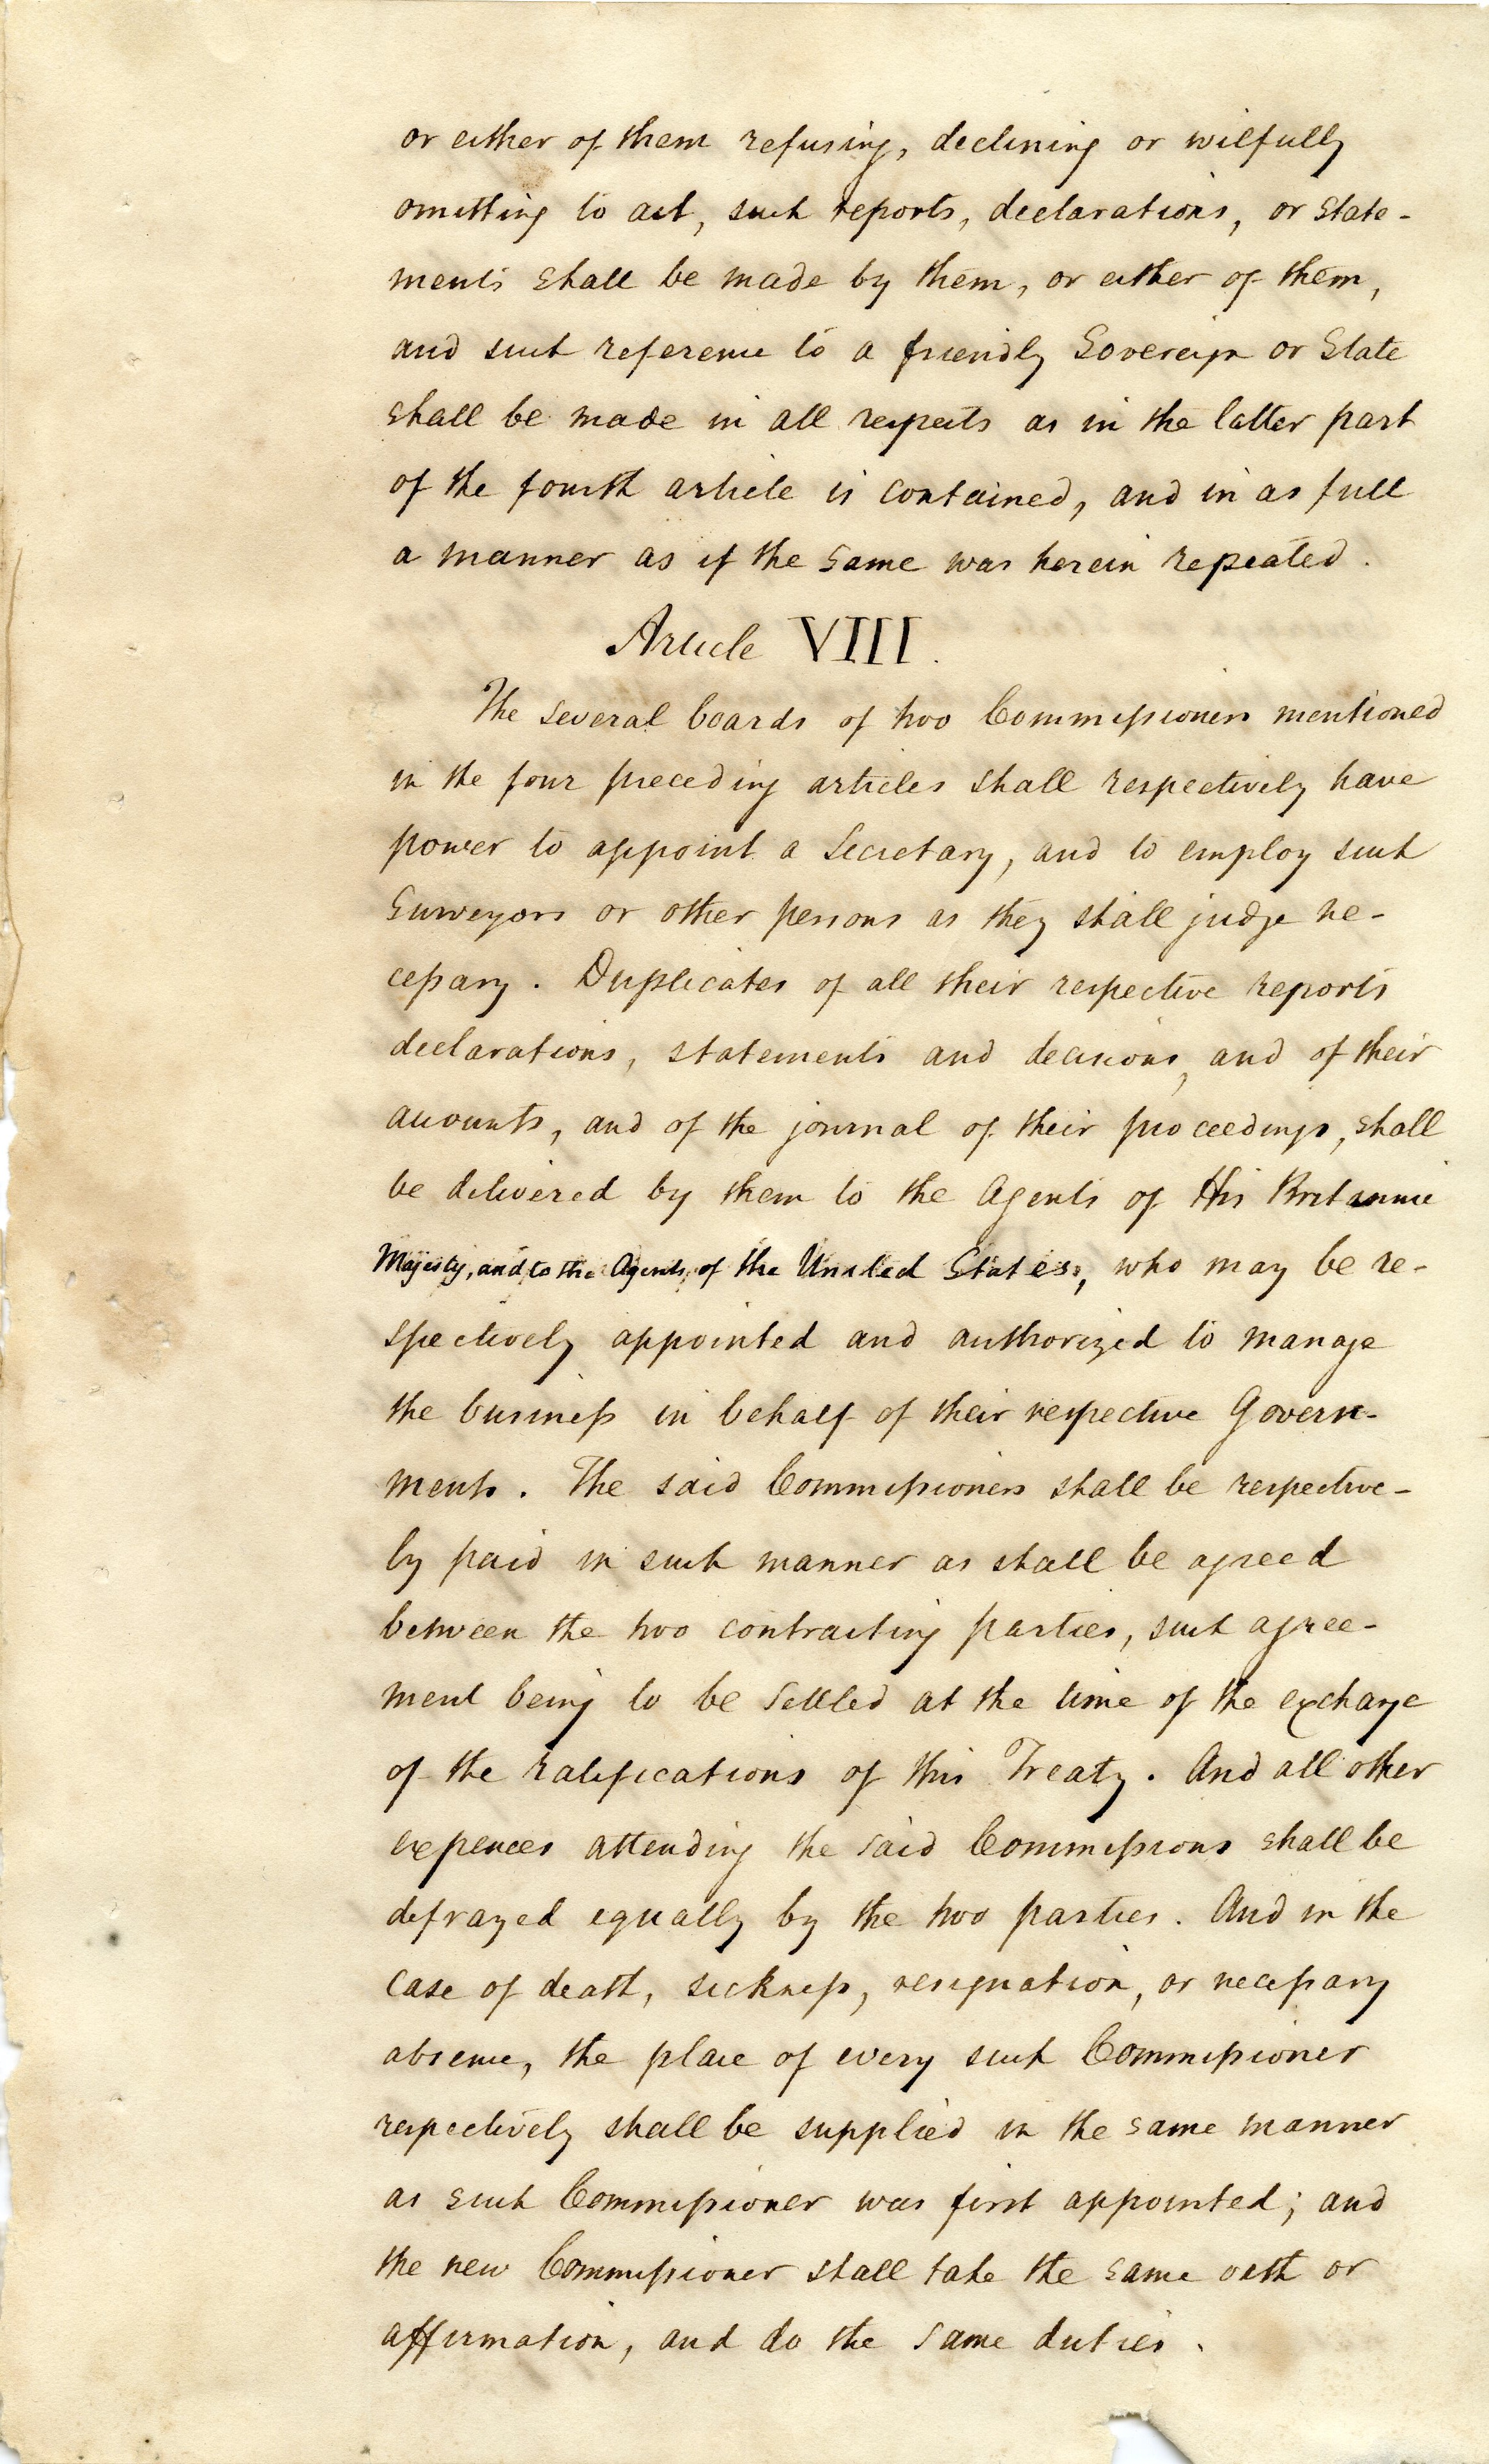 or either of them refusing, declining or wilfully
omitting to act, such reports, declarations, or state-
ments shall be made by them, or either of them,
and such reference to a friendly Sovereign or State
shall be made in all respects as in the latter part
of the fourth article is contained, and in as full
a manner as if the same was herein repeated.
Article VIII.
The several boards of two Commissioners mentioned
in the four preceding articles shall respectively have
power to appoint a Secretary, and to employ such
Surveyors or other persons as they shall judge ne-
cessary. Duplicates of all their respective reports
declarations, statements and decisions, and of their
accounts, and of the journal of their proceedings, shall
be delivered by them to the Agents of His Britannic
Majesty, and to the Agents of the United States, who may be re-
spectively appointed and authorized to manage
the business in behalf of their respective Govern-
ments. The said Commissioners shall be respective-
ly paid in such manner as shall be agreed
between the two contracting parties, such agree-
ment being to be settled at the time of the exchange
of the ratifications of this Treaty. And all other
expences attending the said Commissions shall be
defrayed equally by the two parties. And in the
case of death, sickness, resignation, or necessary
absence, the place of every such Commissioner
respectively shall be supplied in the same manner
as such Commissioner was first appointed; and
the new Commissioner shall take the same oath or
affirmation, and do the same duties.